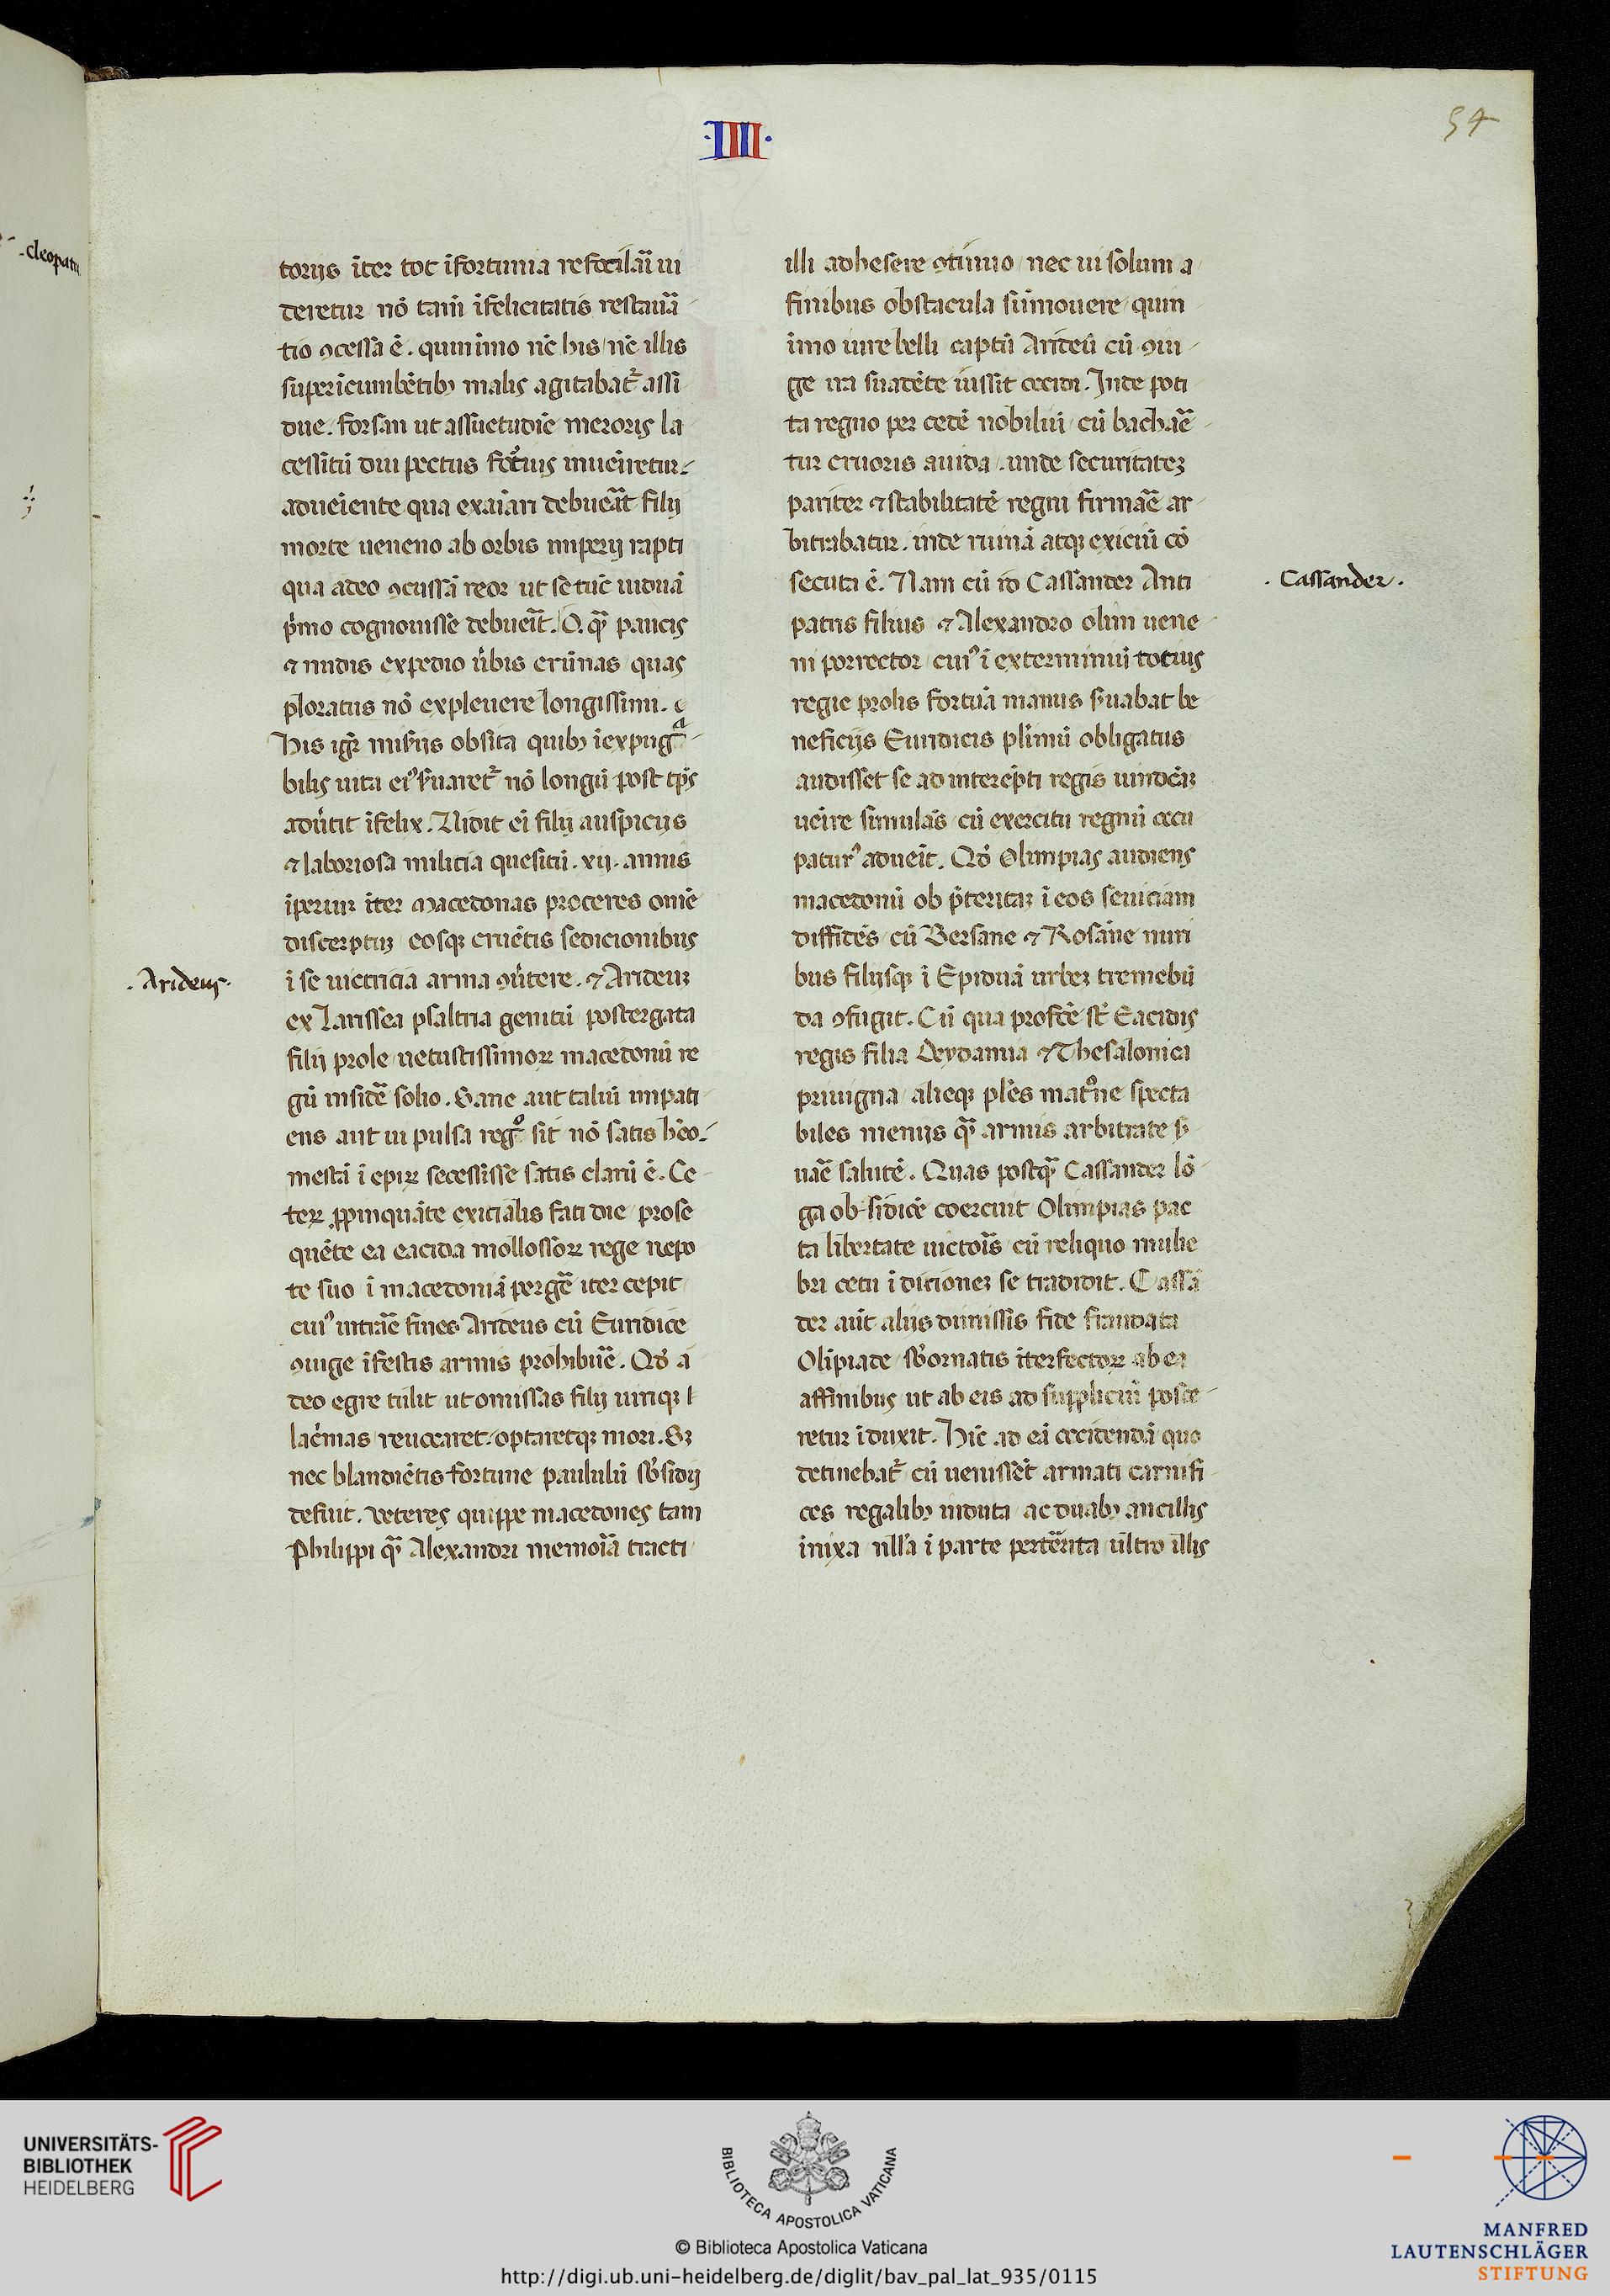 ·IIII·
54
cleopat
toriis īter tot īfortunia refocilaı̄ ui
deretur nō tam̄ īfelicitatis restaua
tio ꝯcessa ē. quinimo nē his nē illis
superīcumbētibꝫ malis agitabat᷑ assi
due. forsan ut assuetudīe meroris la
cessitū diu pectus fortius inuēiretur.
adueniente qua exaı̄ari debuēat filij
morte ueneno ab orbis imperij rapti
qua adeo ꝯcussā reor ut se tūc uiduā
pͥmo cognouisse debueı̄t. O. qͣꝫ paucis
⁊ nudis expedio úbis erūnas quas
ploratus nō expleuere longissimi.
his igͥ miſijs obsita quibꝫ īexpugͣ
bilis uita eiꝰ ẜuaret᷑ nō longū post tp̄s
adúertit īfelix. Uidit ēi filij auspicijs
⁊ laboriosa milicia quesitū .xij. annis
īperium īter macedonas proceres omē
discerptuꝫ eosqꝫ cruētis sedicionibus
.Arideus.
ī se uictricia arma ꝯútere. ⁊ Arideuꝫ
ex larissea psaltria genitū postergata
filij prole uetustissimoꝝ macedonū re
gū insidē solio. Sane aut talium impati
ens aut ui pulsa regͦ sit nō satis hēo.
mestā ī epiꝝ secessisse satis clarū ē. Ce
teꝝ ꝓpinquāte exicialis fati die prose
quēte ea eacida mollossoꝝ rege nepo
te suo ī macedoniā pergē̄ iter cepit
cuiꝰ intrāē fines Arideus cū Euridice
ꝯiuge īfestis armis prohibuē. Qd̓ a
deo egre tulit ut omissas filij uirıqꝫ
lac̄mas reuocaret. optaretqꝫ mori. Sꝫ
nec blandiētis fortune paululū sb̓sidij
defuit. Veteres quippe macedones tam
Philippi qͣꝫ Alexandri memoı̄a tracti
illi adhesere ꝯtinuo nec ui solum a
finibus obstacula sūmouere quin
imo iure belli captū Arideū cū ꝯiu
ge ita suadēte iussit occidi. Inde poti
ta regno per cedē nobiliū cū bachaē
tur cruoris auida. unde securitateꝫ
pariter ⁊ stabilitatē regni firmāē ar
bitrabatur. inde ruinā atqꝫ exiciū cō
secuta ē. Nam cū id Cassander Anti
. Cassander .
patris filius ⁊ Alexandro olim uene
ni porrector cuiꝰ ī exterminiū totius
regie prolis fortūa manus ẜuabat be
neficijs Euridicis plimū obligatus
audisset se ad interēpti regis uindcāꝫ
uēire simulās cū exercitu regnū occu
paturꝰ adueı̄t. Qd̓ Olimpias audiens
macedonū ob pͤteritaꝫ ī eos seuiciam
diffidēs cū Bersane ⁊ Rosāne nuri
bus filijsqꝫ ī Epidnā urbeꝫ tremebū
da ꝯfugit. Cū qua profcē st̄ Eacidis
regis filia Deydamia ⁊ Thesalonica
priuigna alieqꝫ ples matͦne specta
biles menijs qͣꝫ armis arbitrate ẜ
uāē salutē. Quas postqͣꝫ Cassander lō
ga obsidiōe coercuit Olimpias pac
ta libertate uictoı̄s cū reliquo mulie
bri cetu ī ditioneꝫ se tradidit. Cassā
der aūt alijs dimissis fide fraudata
Olīpiade sb̓ornatis īterfectoꝝ ab ea
affinibus ut ab eis ad suppliciū posce
retur īduxit. Hīc ad eā occidendā quo
detinebat᷑ cū uenissēt armati carnifi
ces regalibꝫ induta ac duabꝫ ancillis
inixa nlla ī parte perterrita ultro illis
UNIVERSITÄTS-
BIBLIOTHEK
HEIDELBERG
BIBLIOTECA APOSTOLICA VATICANA
© Biblioteca Apostolica Vaticana
http://digi.ub.uni-heidelberg.de/diglit/bav_pal_lat_935/0115
MANFRED
LAUTENSCHLÄGER
STIFTUNG